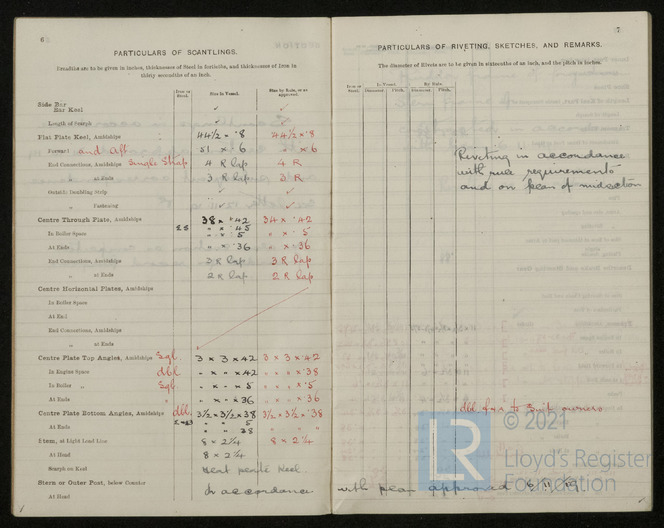 6
PARTICULARS OF SCANTLINGS.
Breadths are to be given in inches, thicknesses of Steel in fortieths, and thicknesses of Iron in
thirty seconds of an inch.
Iron or Steel. Size in Vessel. Size by Rule, or as approved.
Side Bar
Bar Keel ✓ ✓
Length of Scarph ✓ ✓
Flat Plate Keel, Amidships 44½ × .8 44½ × .8
Forward and Aft 51 × 6 × 6
End Connections, Amidships Single Strap 4 R lap 4 R
" at Ends 3 R lap 3 R
Outside Doubling Strip
" Fastening
Centre Through Plate, Amidships 38 × .42 34 × .42
In Boiler Space " × .45
" × .5 " × .5
At Ends " × .36 " × .36
End Connections, Amidships 3 R lap 3 R lap
" at Ends 2 R lap 2 R lap
Centre Horizontal Plates, Amidships
In Boiler Space
At End
End Connections, Amidships
" at Ends
Centre Plate Top Angles, Amidships Sgl 3 × 3 × 42 3 × 3 × .42
In Engine Space dbl " × " × 42 " × " × .38
In Boiler " Sgl " × " × 5 " × " × .5
At Ends " " × " × 36 " " × .36
Centre Plate Bottom Angles, Amidships dbl. 3½ × 3½ × 38 3½ × 3½ × .38
At Ends " " 5 " " "
" 38
Stem, at Light Load Line 8 × 2¼ 8 × 2¼
At Head 8 × 2¼
Scarph on Keel
Stern or Outer Post, below Counter
At Head In accordance with plan approved
7
PARTICULARS OF RIVETING, SKETCHES, AND REMARKS.
The diameter of Rivets are to be given in sixteenths of an inch, and the pitch in inches.
Iron or Steel. In Vessel. By Rule.
Diameter. Pitch. Diameter. Pitch.
Riveting in accordance
with rule requirements
and on plan of midsection
dbl for to suit owners
© 2021
LR
Lloyd's Register
Foundation